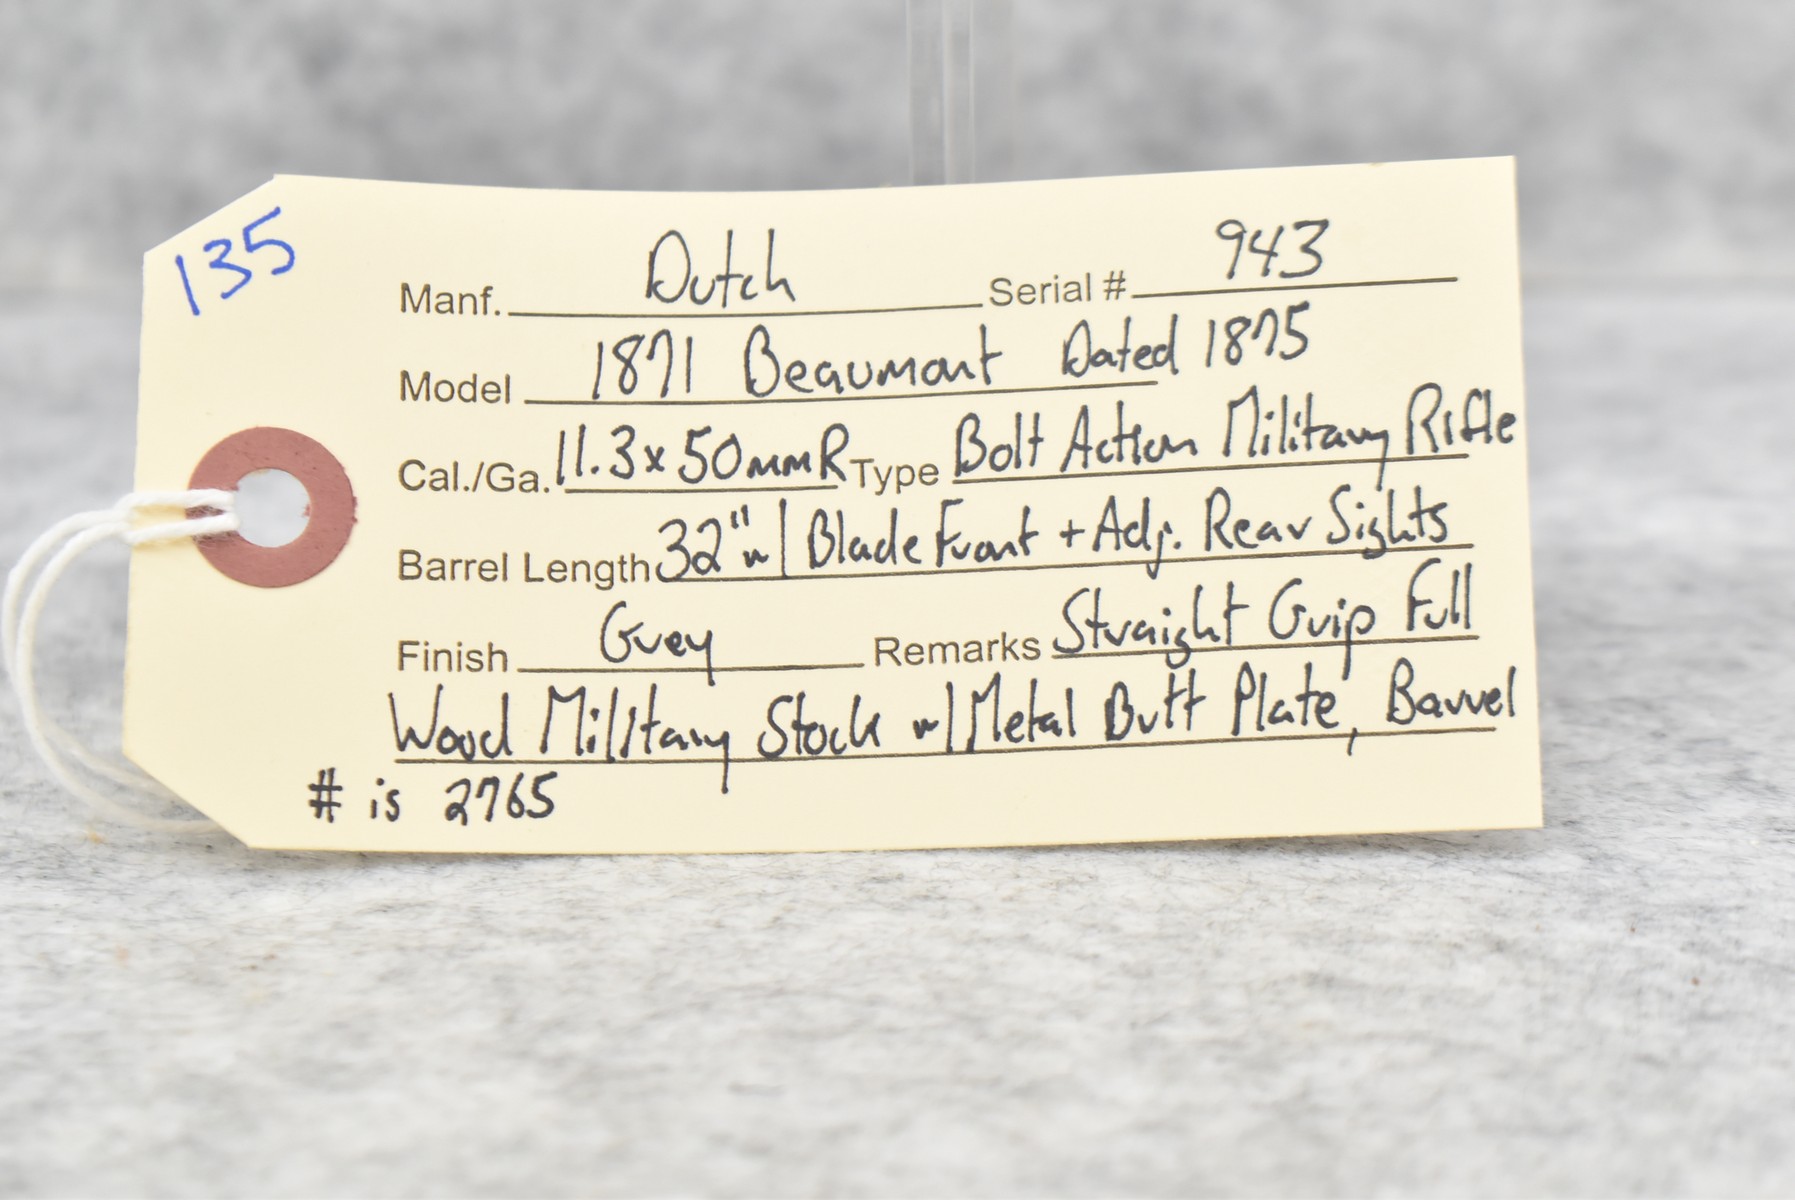 135
Manf. Dutch Serial # 943
Model 1871 Beaumont Dated 1875
Cal./Ga. 11.3x50mmR Type Bolt Action Military Rifle
Barrel Length 32" w/ Blade Front + Adj. Rear Sights
Finish Grey Remarks Straight Grip Full
Wood Military Stock w/ Metal Butt Plate, Barrel
# is 2765